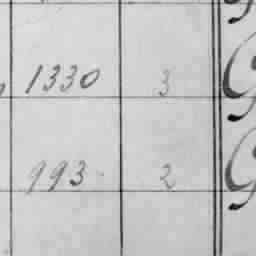 1330 3
993 2